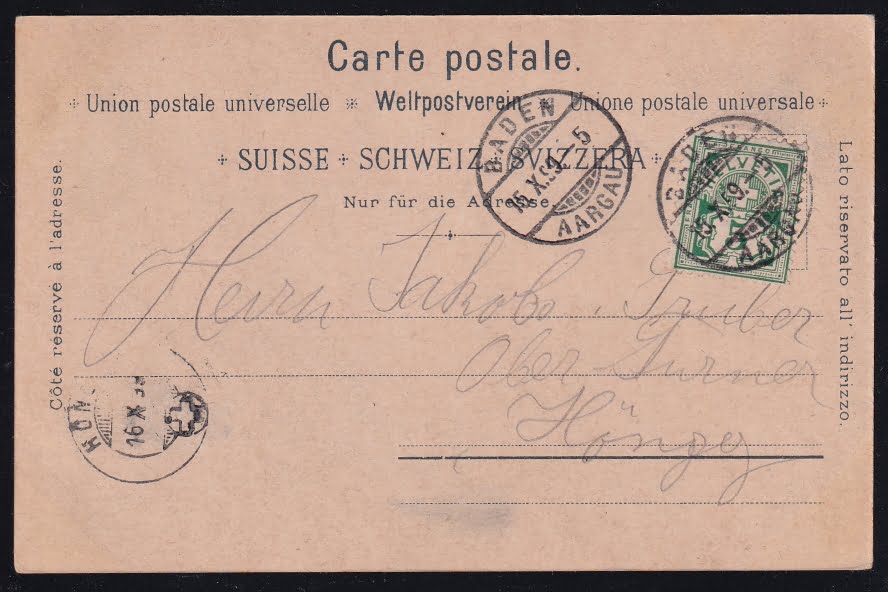 Carte postale.
Union postale universelle * Weltpostverein * Unione postale universale
+ SUISSE + SCHWEIZ + SVIZZERA +
Nur für die Adresse.
Côté réservé à l'adresse.
Lato riservato all' indirizzo.
BADEN
15.X.99.-5
AARGAU
BADEN
HELVETIA
AARGAU
Herrn Jakob Gruber
Ober-Turner
Höngg
HÖN
16 X 99